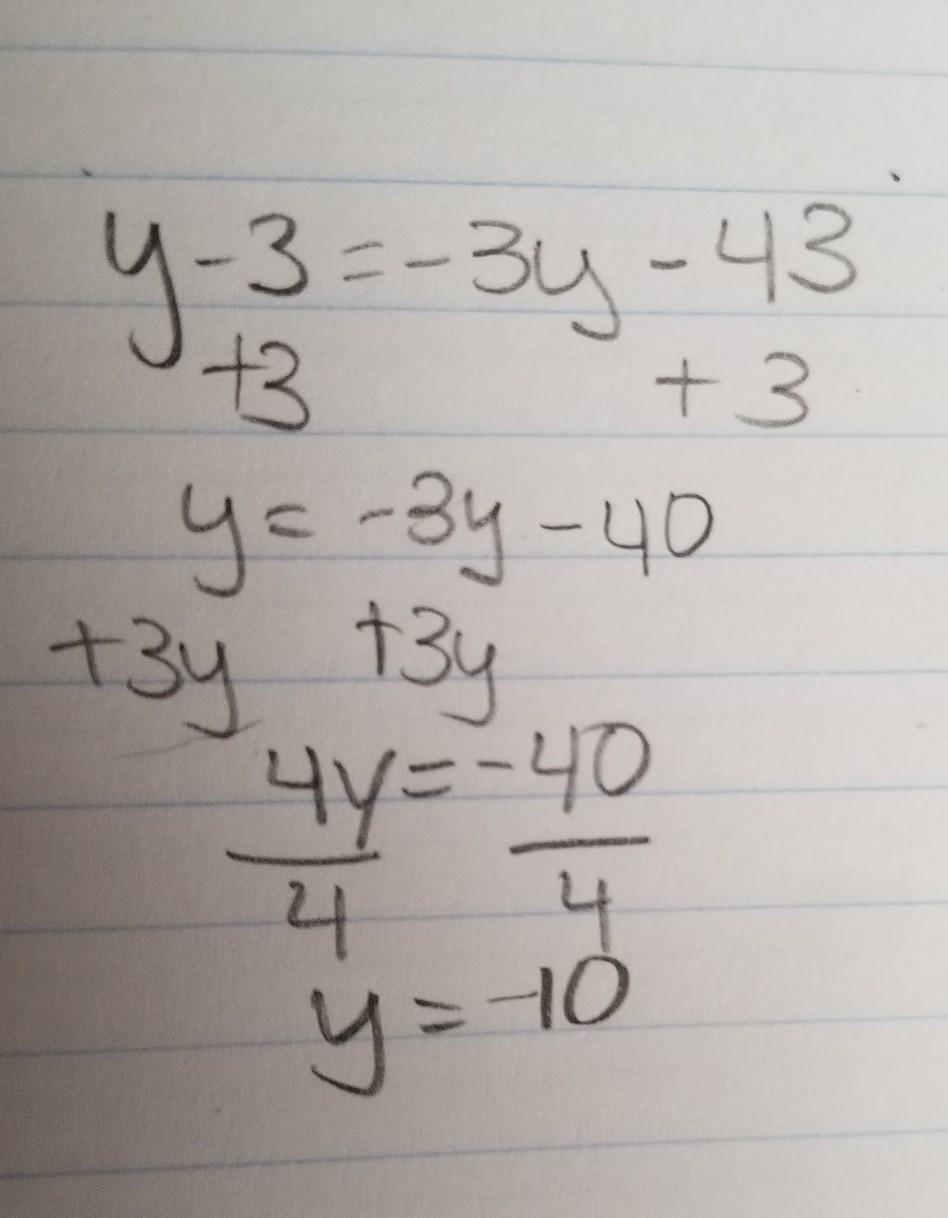 y - 3 = -3y - 43
+3 + 3
y = -3y - 40
+3y +3y
4y = -40
4 4
y = -10